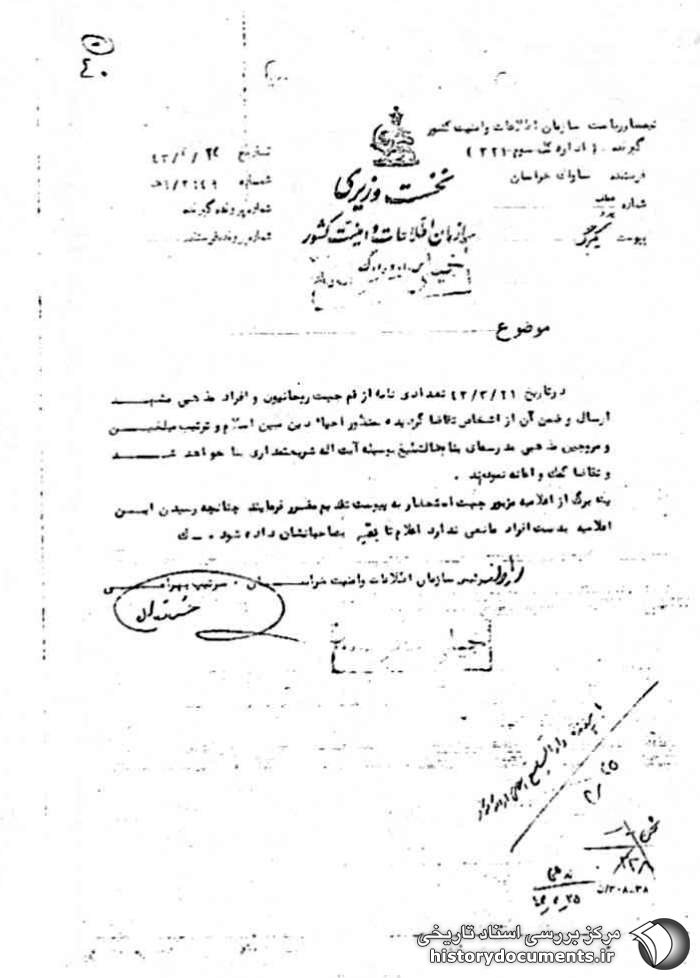 ۴۰
تیمسار ریاست سازمان اطلاعات و امنیت کشور
گیرنده : ( اداره کل سوم-۳۲۱ )
فرستنده ساواک خراسان
شماره
پیوست یکبرگ
نخست وزیری
سازمان اطلاعات و امنیت کشور
تاریخ
شماره
شماره پرونده گیرنده
شماره پرونده فرستنده
موضوع
در تاریخ ۴۳/۳/۲۱ تعدادی نامه از قم جهت روحانیون و افراد مذهبی مشهد
ارسال و ضمن آن از اشخاص تقاضا گردیده بمنظور احیاء دین مبین اسلام و ترتیب مبلغین
و مروجین مذهبی مدرسه‌ای بنام دارالتبلیغ بوسیله آیت اله شریعتمداری بنا خواهد شد
و تقاضا کمک و اعانه نموده‌اند .
یک برگ از اعلامیه مزبور جهت استحضار به پیوست تقدیم مقرر فرمایند چنانچه رسیدن این
اعلامیه بدست افراد مانعی ندارد اعلام تا بقیه بصاحبانشان داده شود . ک
رئیس سازمان اطلاعات و امنیت خراسان . سرتیپ بهرامی
پرونده دارالتبلیغ
۳۰۸-۳۸
مرکز بررسی اسناد تاریخی
historydocuments.ir